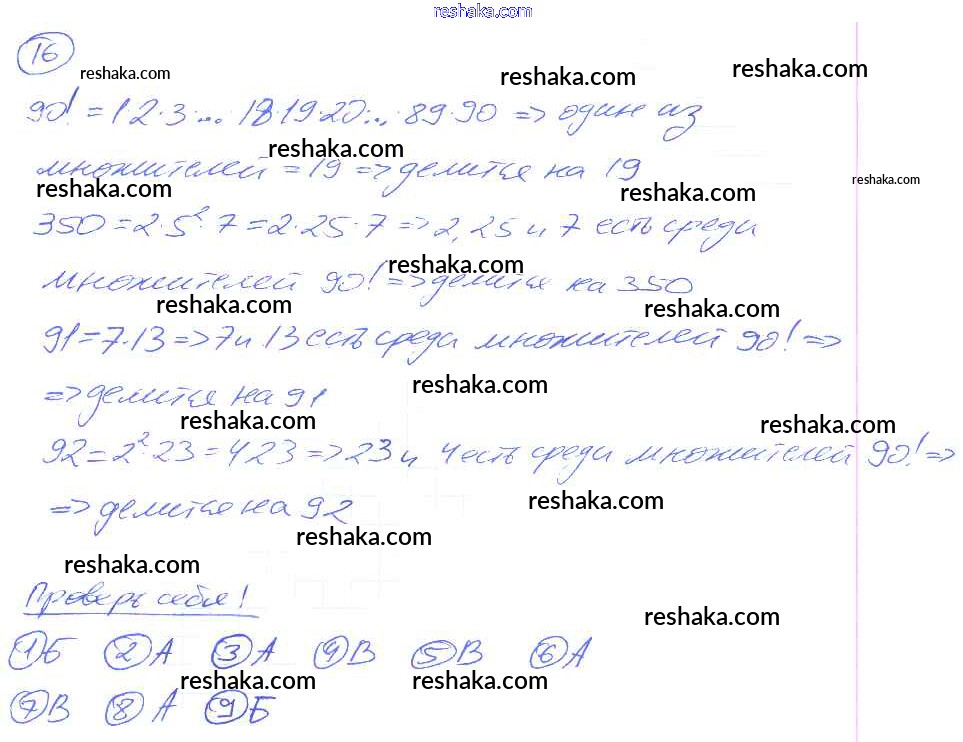 reshaka.com
16
reshaka.com reshaka.com reshaka.com
90! = 1·2·3·... 18·19·20·... 89·90 => один из
reshaka.com
множителей = 19 => делится на 19
reshaka.com reshaka.com reshaka.com
350 = 2·5²·7 = 2·25·7 => 2, 25 и 7 есть среди
reshaka.com
множителей 90! => делится на 350
reshaka.com reshaka.com
91 = 7·13 => 7 и 13 есть среди множителей 90! =>
reshaka.com
=> делится на 91
reshaka.com reshaka.com
92 = 2²·23 = 4·23 => 23 и 4 есть среди множителей 90! =>
reshaka.com
=> делится на 92
reshaka.com
reshaka.com
Проверь себя!
reshaka.com
1 Б 2 А 3 А 4 В 5 В 6 А
reshaka.com reshaka.com
7 В 8 А 9 Б